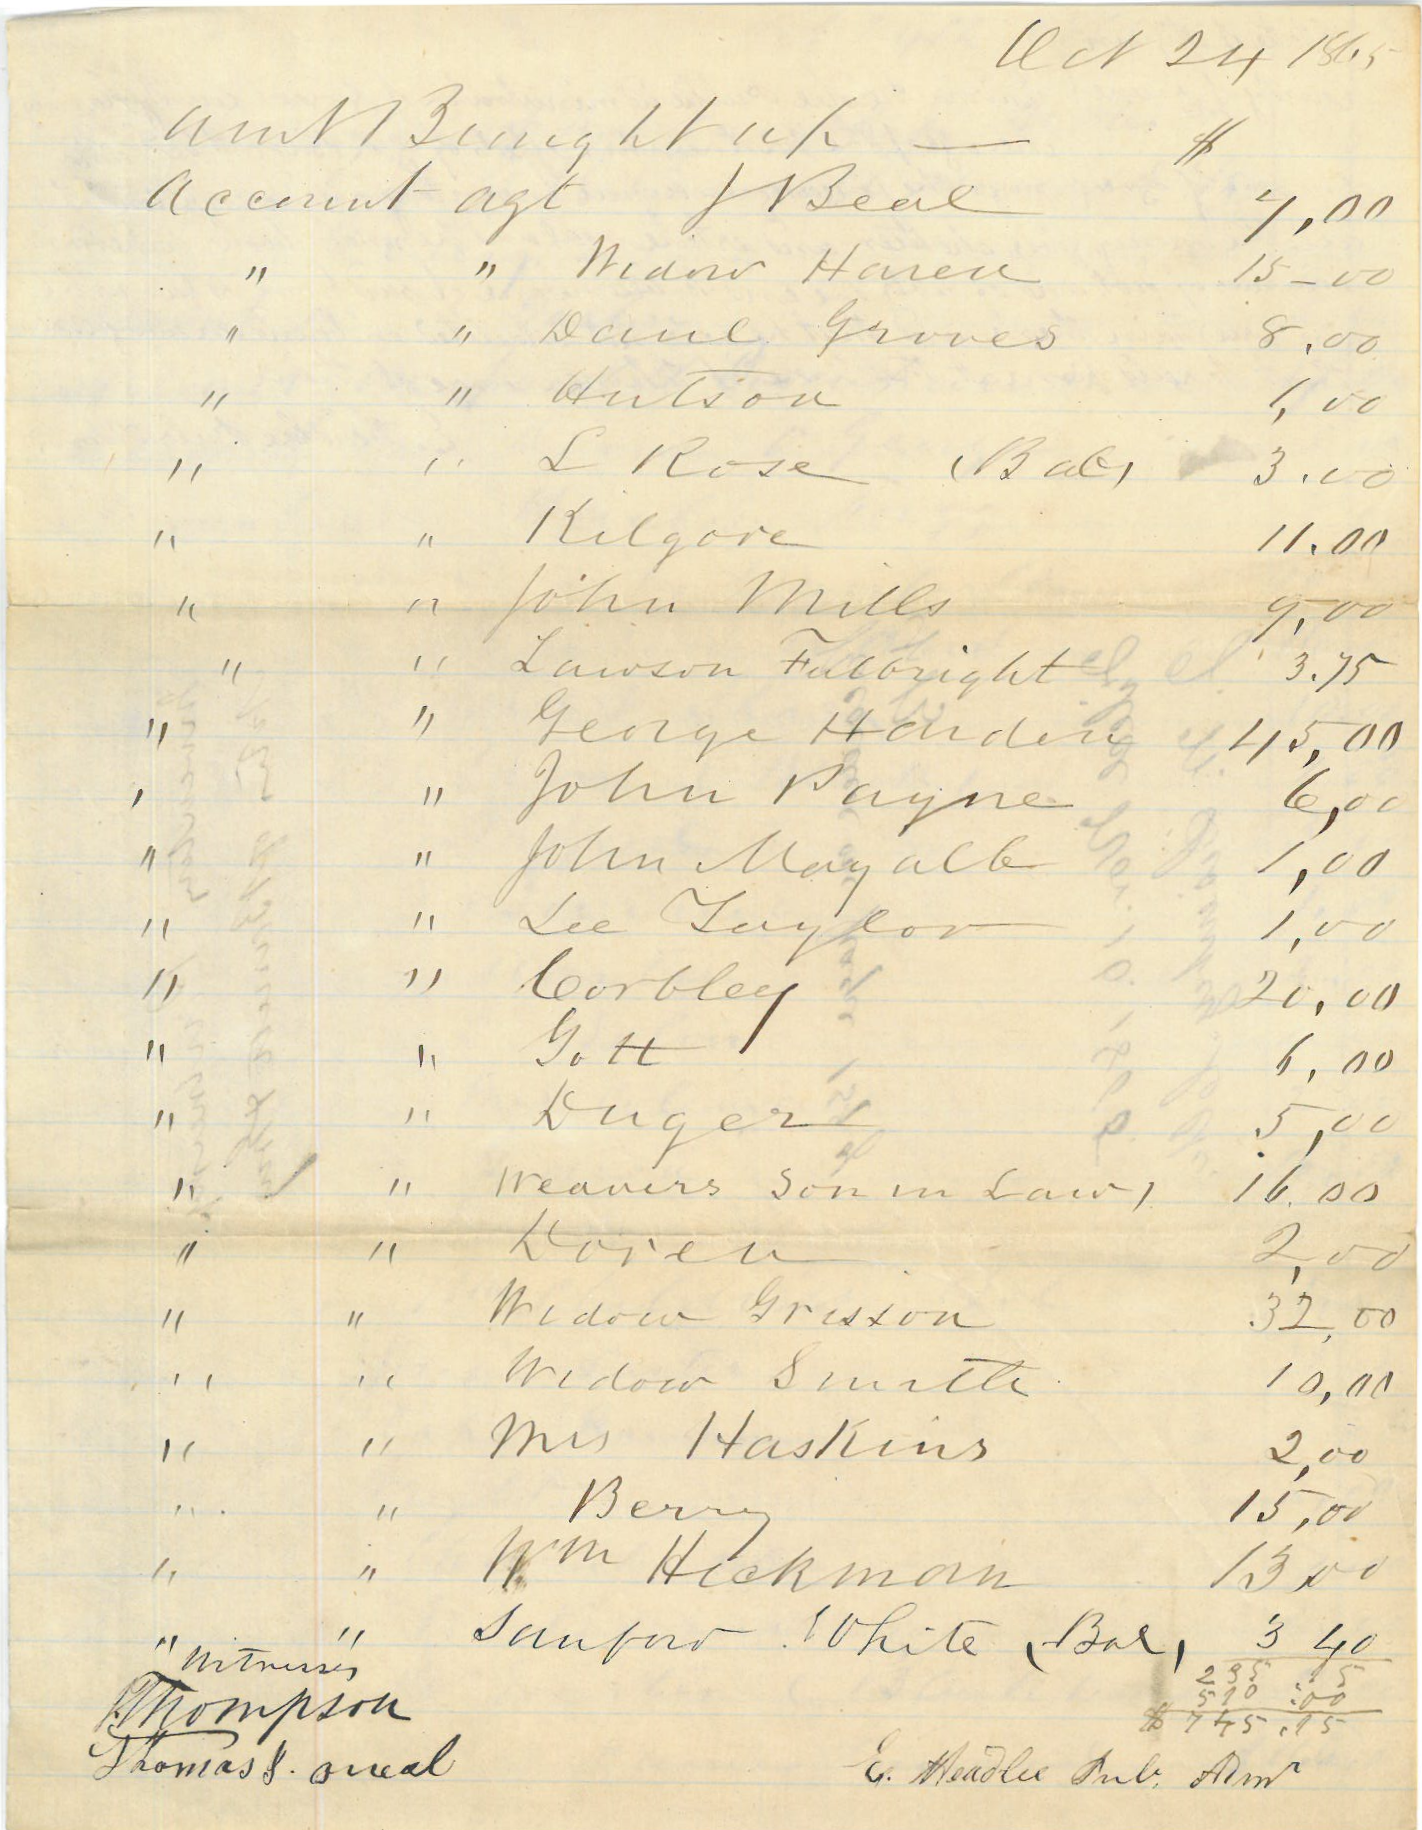 Oct 24 1865
Amt Brought up — $
Account agt J Beal 7,00
" " Widow Haren 15-00
" " Danl Groves 8.00
" " Hutson 1,00
" " L Rose (Bal) 3.00
" " Kilgore 11.00
" " John Mills 9,00
" " Lawson Fulbright 3.75
" " George Hardin 45,00
" " John Payne 6,00
" " John Mayall 1,00
" " Lee Taylor 1,00
" " Corbley 20,00
" " Gott 6,00
" " Duger 5,00
" " Weavers Son in Law, 16.00
" " Doren 2,00
" " Widow Grisson 32,00
" " Widow Smith 10,00
" " Mrs Haskins 2,00
" " Berry 15,00
" " Wm Hickman 13 00
" " Sanford White (Bal) 3 40
Witnesses
235 15
510 :00
Thompson
$ 745.15
Thomas J. oneal
E. Headlee Pub. Admr